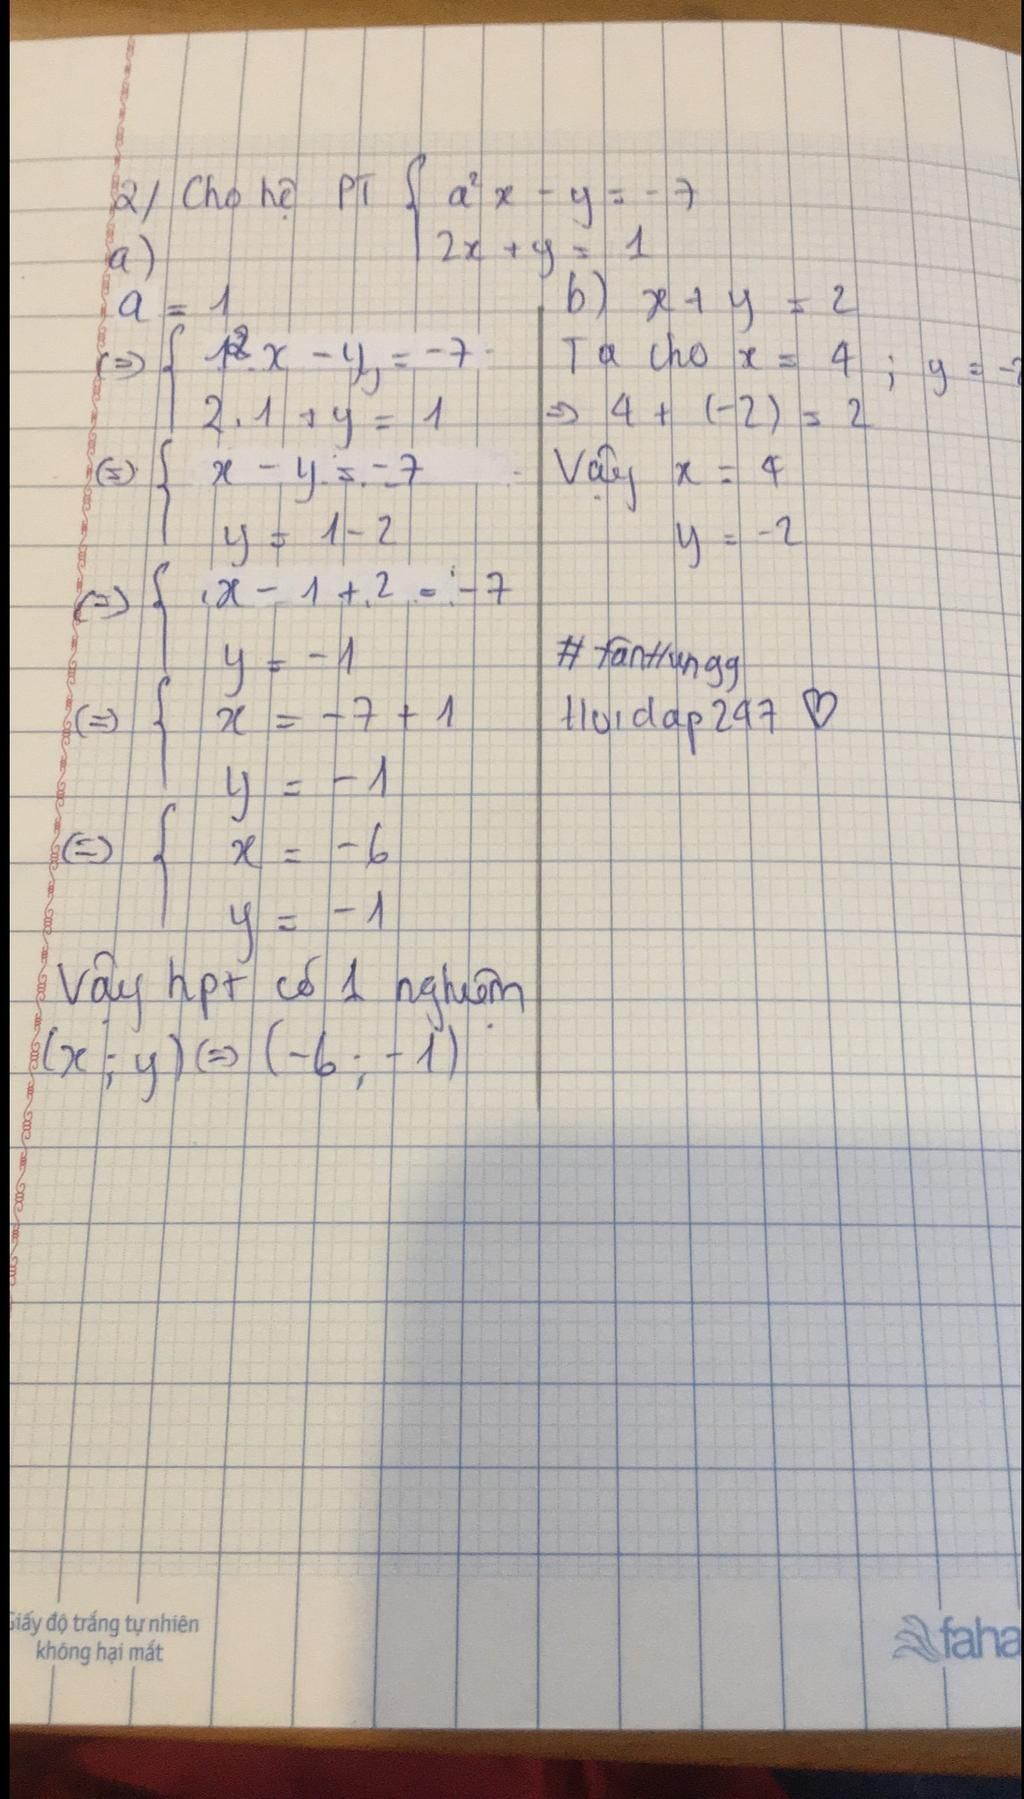 2/ Cho hệ PT { a²x - y = -7
2x + y = 1
a)
a = 1
(=) { 1² x - y = -7
2.1 + y = 1
(=) { x - y = -7
y = 1 - 2
(=) { x - 1 + 2 = -7
y = -1
(=) { x = -7 + 1
y = -1
(=) { x = -6
y = -1
Vậy hpt có 1 nghiệm
(x ; y) (=) (-6 ; -1)
b) x + y = 2
Ta cho x = 4 ; y = -2
=> 4 + (-2) = 2
Vậy x = 4
y = -2
# TanHungg
Hoidap247 ♡
Giấy độ trắng tự nhiên
không hại mắt
faha